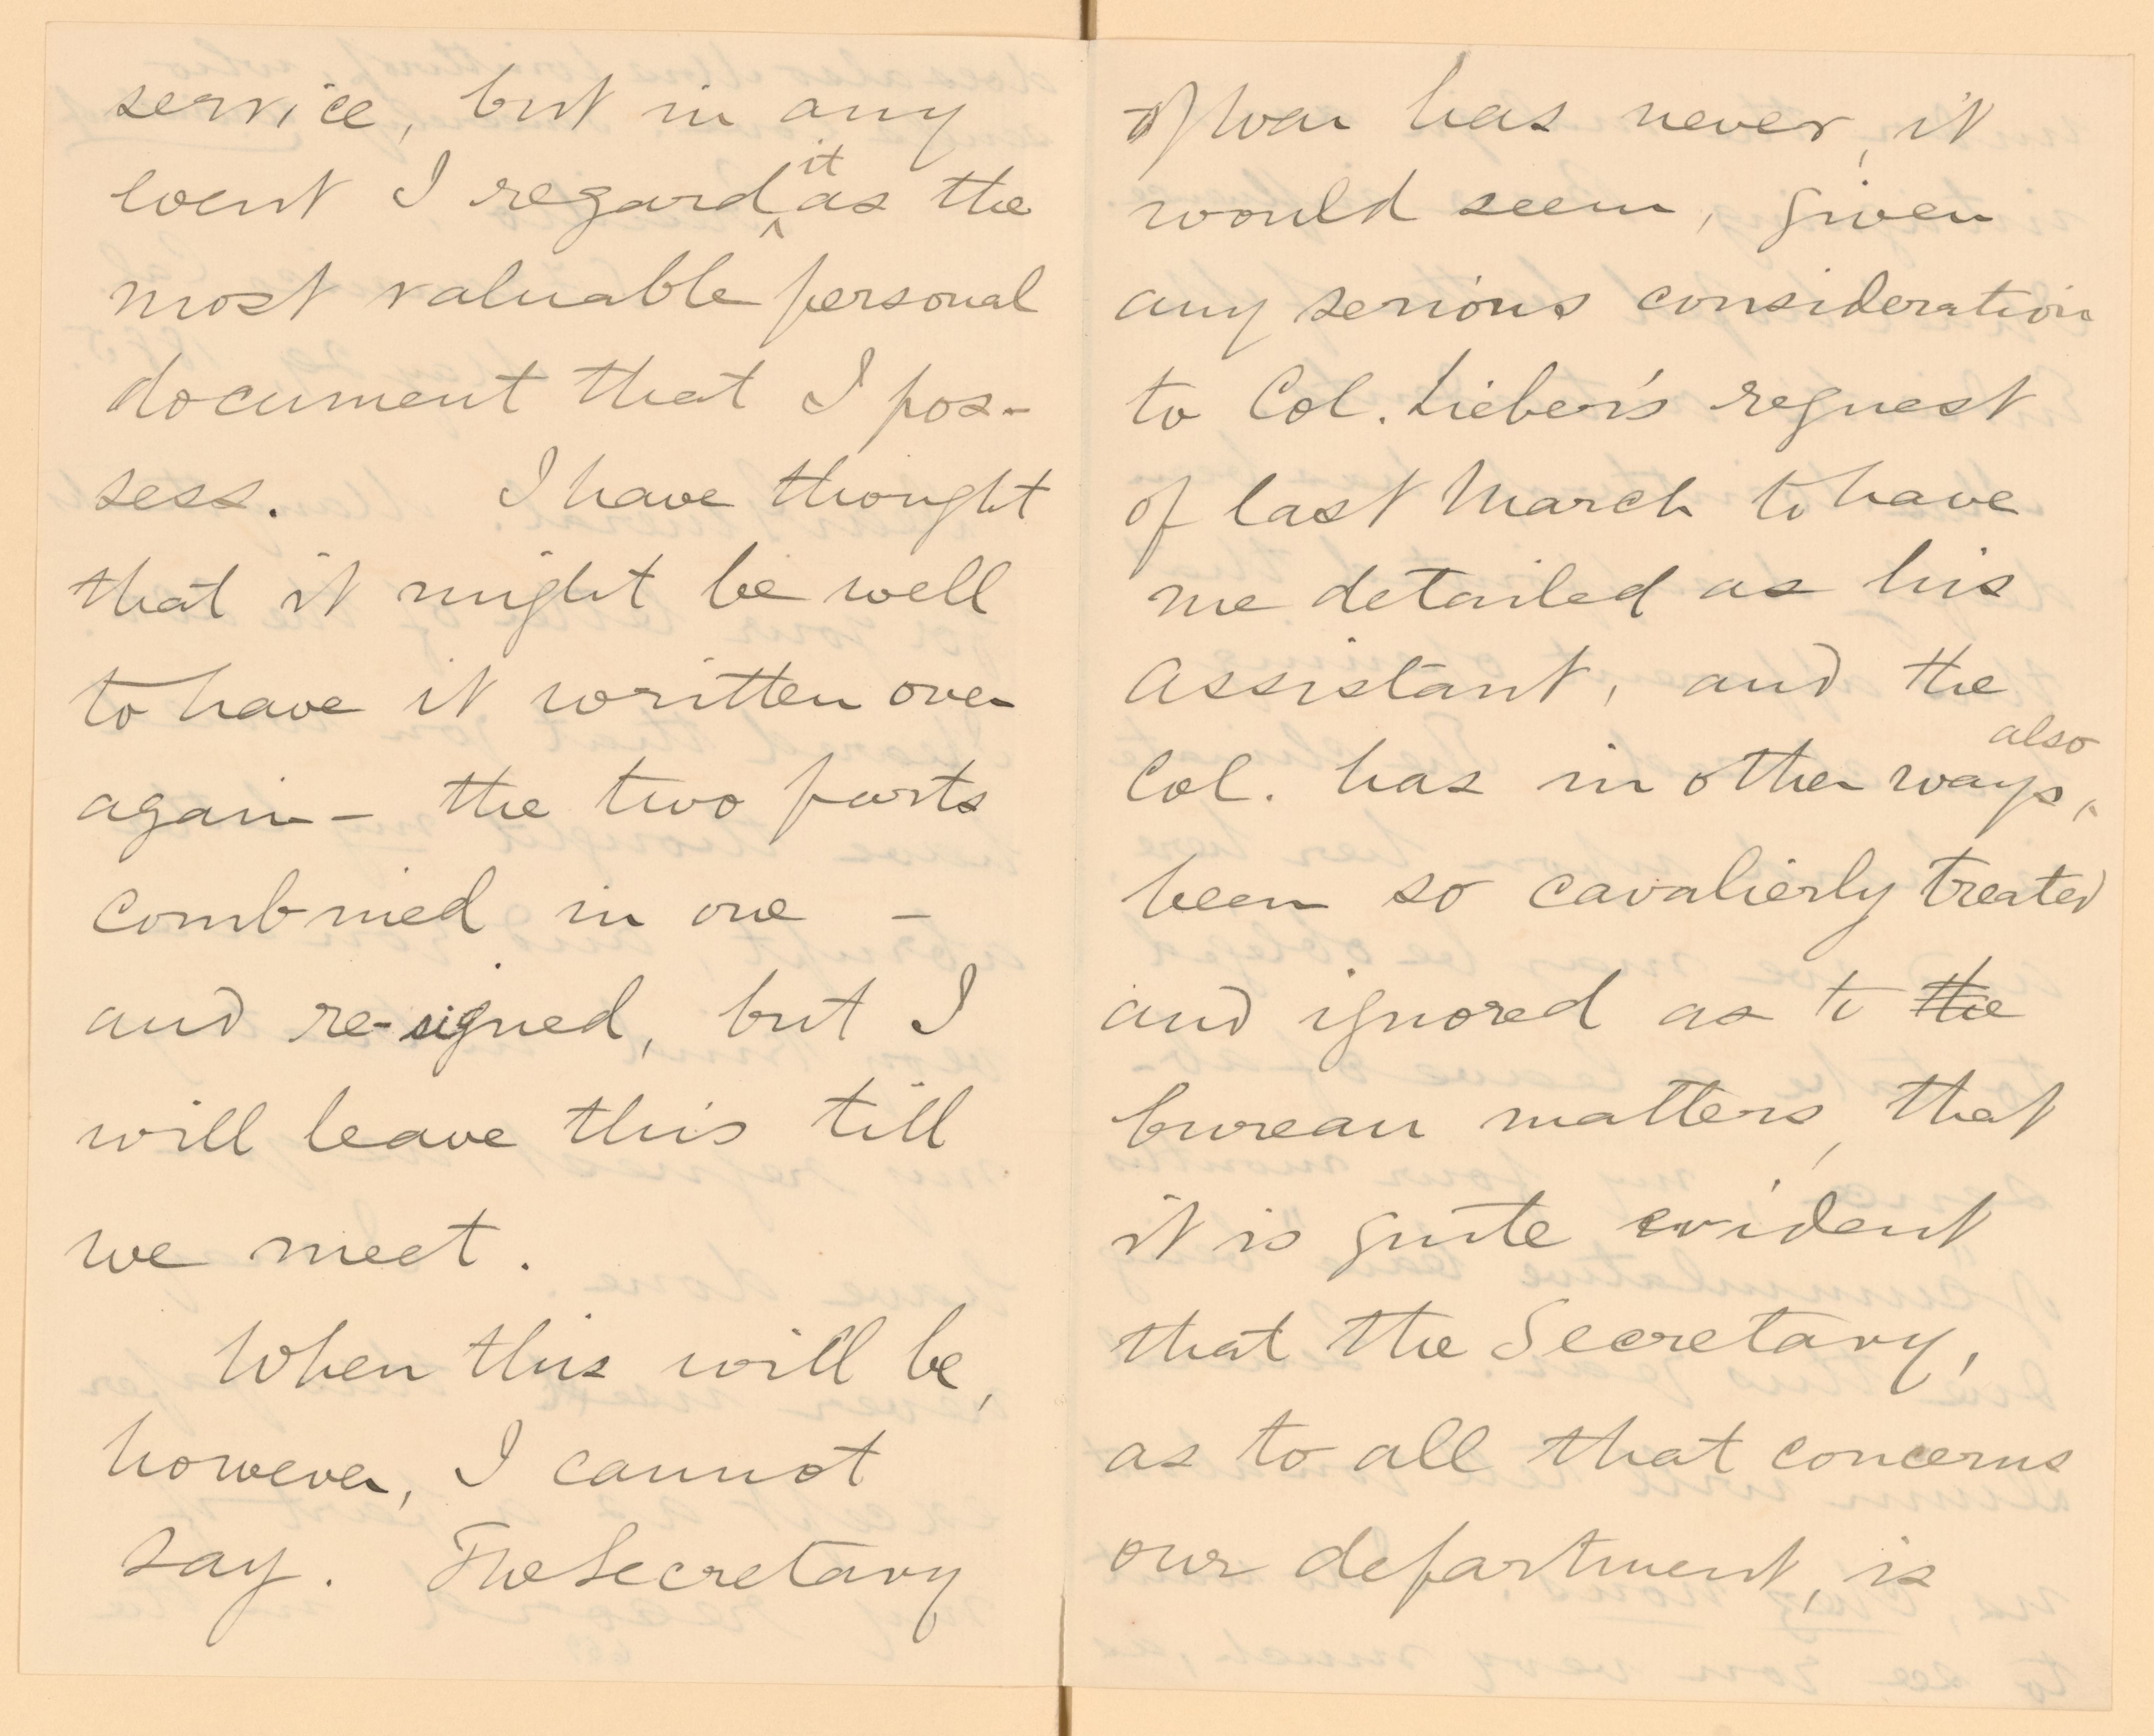 service, but in any
event I regard it as the
most valuable personal
document that I pos-
sess. I have thought
that it might be well
to have it written over
again - the two parts
combined in one -
and re-signed, but I
will leave this till
we meet.
When this will be,
however, I cannot
say. The Secretary
of War has never, it
would seem, given
any serious consideration
to Col. Lieber's request
of last March to have
me detailed as his
Assistant, and the
Col. has in other ways, also
been so cavalierly treated
and ignored as to the
bureau matters, that
it is quite evident
that the Secretary,
as to all that concerns
our department, is